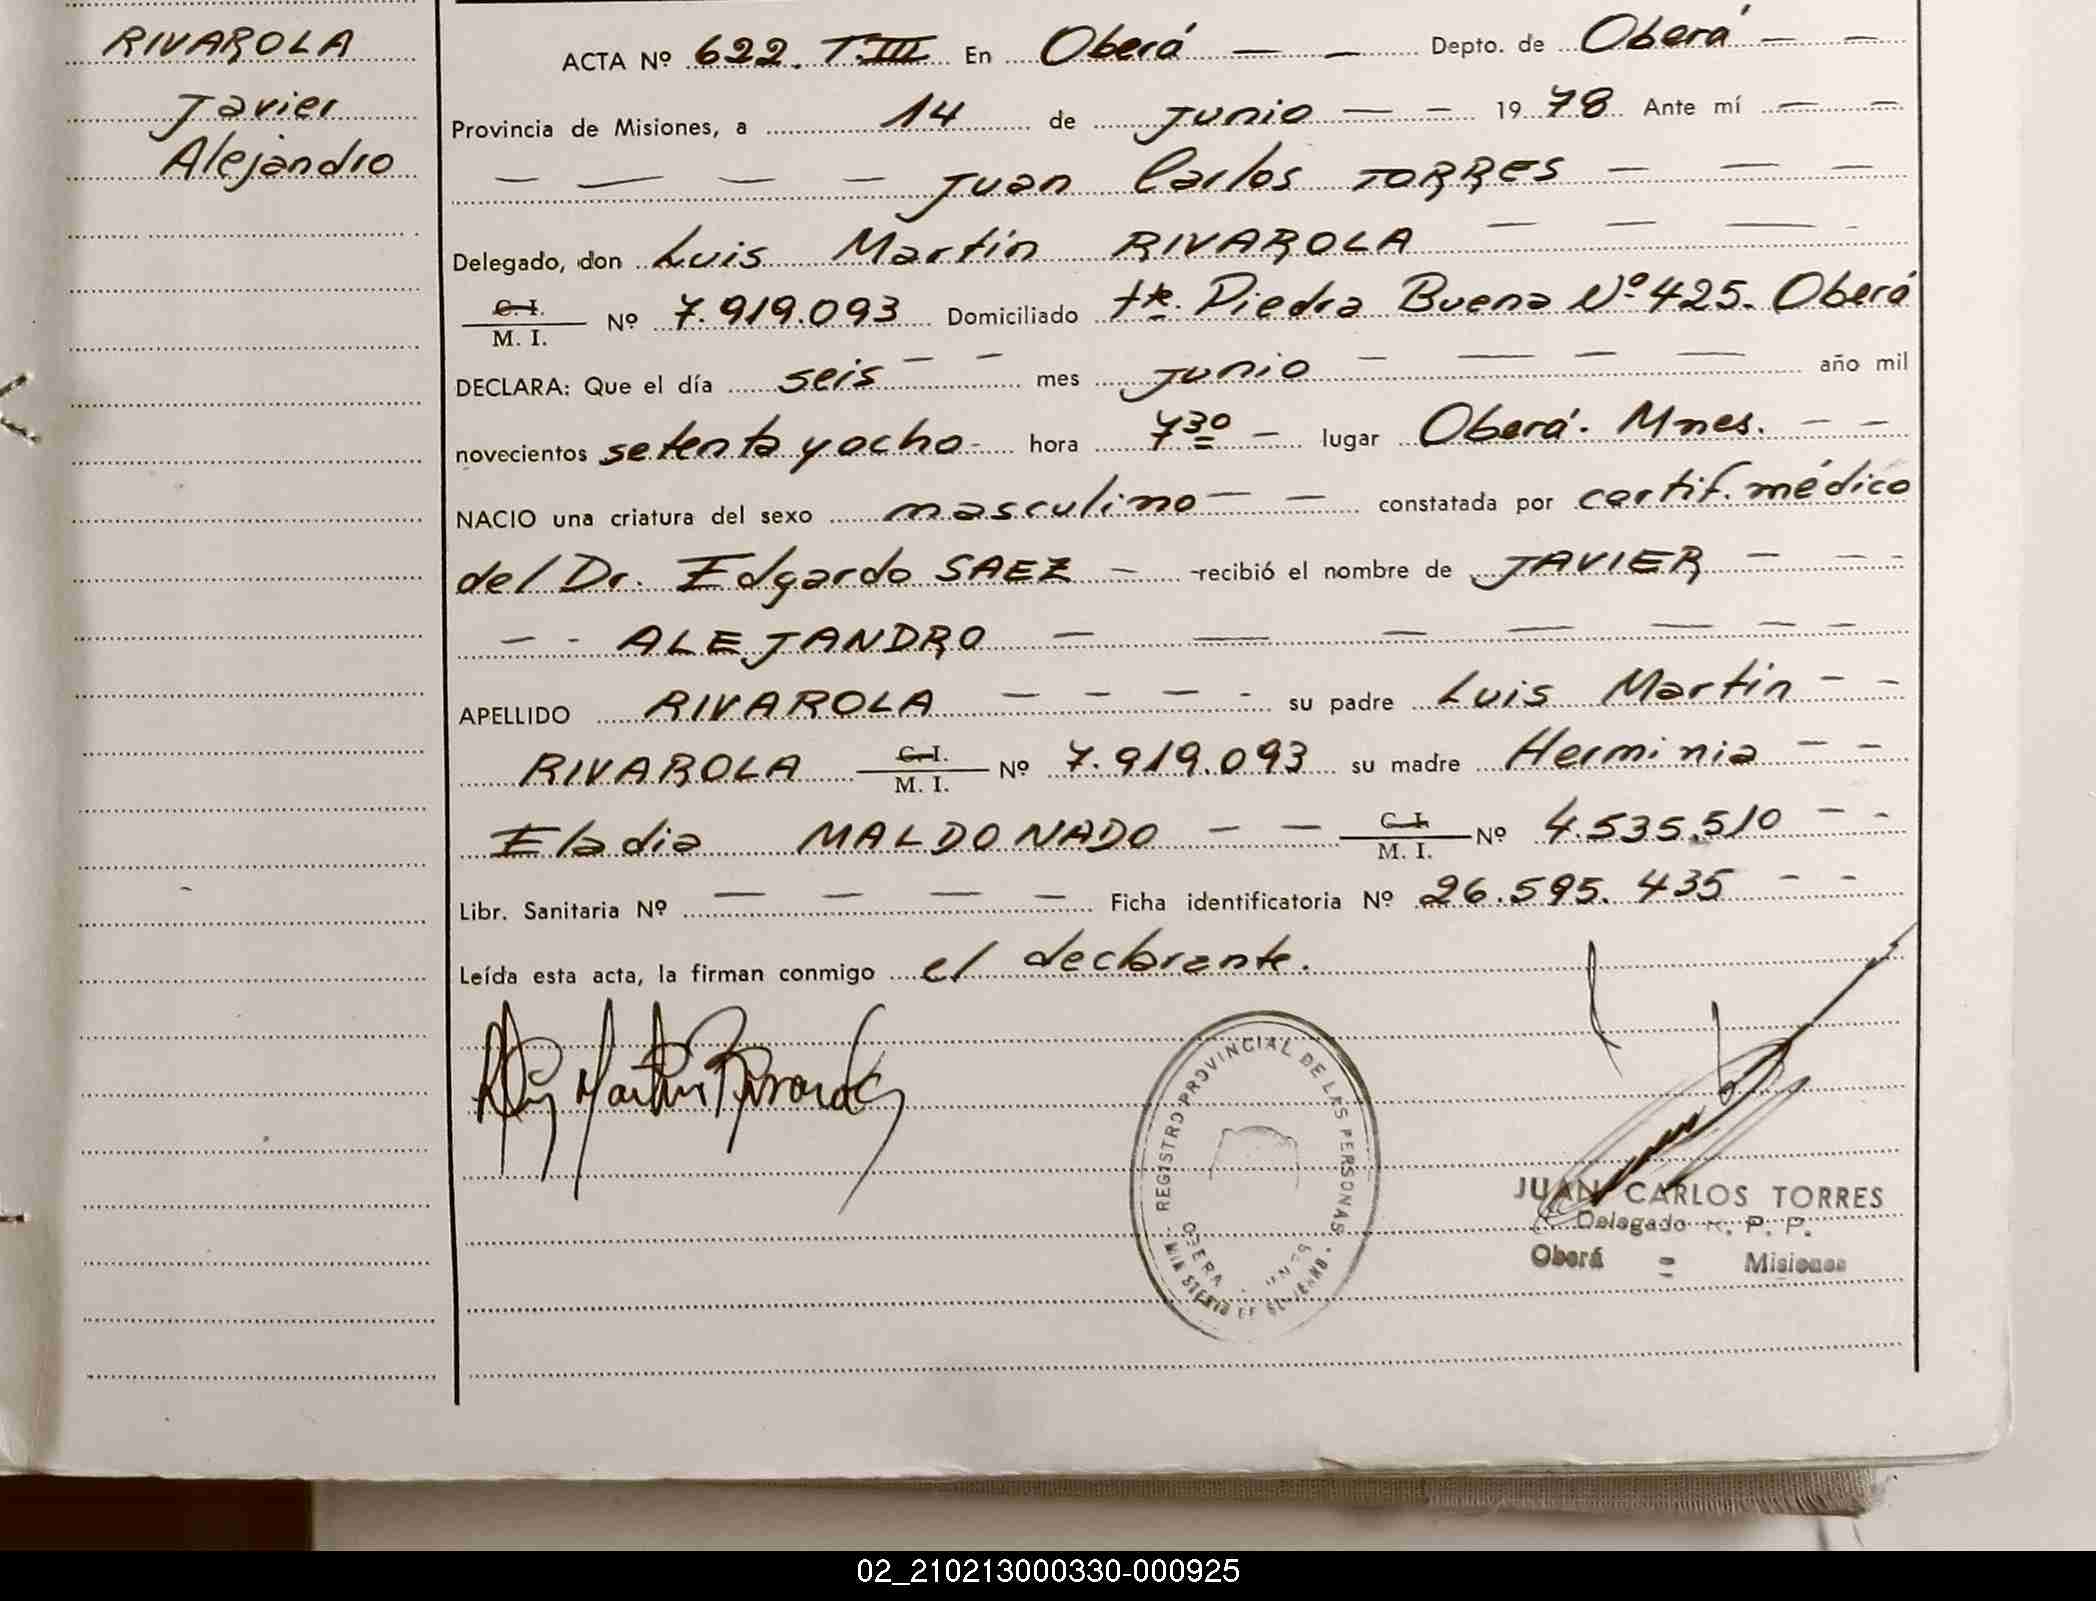 RIVAROLA
Javier
Alejandro
ACTA Nº 622. T.III En Oberá Depto. de Oberá
Provincia de Misiones, a 14 de junio 1978 Ante mí
Juan Carlos TORRES
Delegado, don Luis Martín RIVAROLA
C. I.
M. I. Nº 7.919.093 Domiciliado tte. Piedra Buena Nº 425. Oberá
DECLARA: Que el día seis mes junio año mil
novecientos setenta y ocho hora 7 30 lugar Oberá. Mnes.
NACIO una criatura del sexo masculino constatada por certif. médico
del Dr. Edgardo SAEZ recibió el nombre de JAVIER
ALEJANDRO
APELLIDO RIVAROLA su padre Luis Martín
RIVAROLA C. I.
M. I. Nº 7.919.093 su madre Herminia
Eladia MALDONADO C. I.
M. I. Nº 4.535.510
Libr. Sanitaria Nº Ficha identificatoria Nº 26.595.435
Leída esta acta, la firman conmigo el declarante.
Luis Martin Rivarola
REGISTRO PROVINCIAL DE LAS PERSONAS
OBERA
MINISTERIO DE GOBIERNO
JUAN CARLOS TORRES
Delegado R. P. P.
Oberá = Misiones
02_210213000330-000925